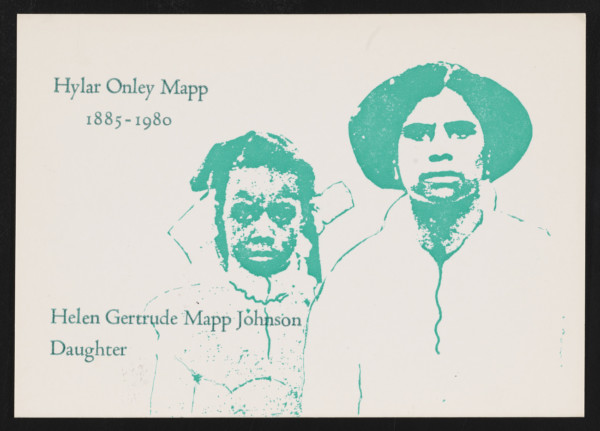 Hylar Onley Mapp
1885-1980
Helen Gertrude Mapp Johnson
Daughter